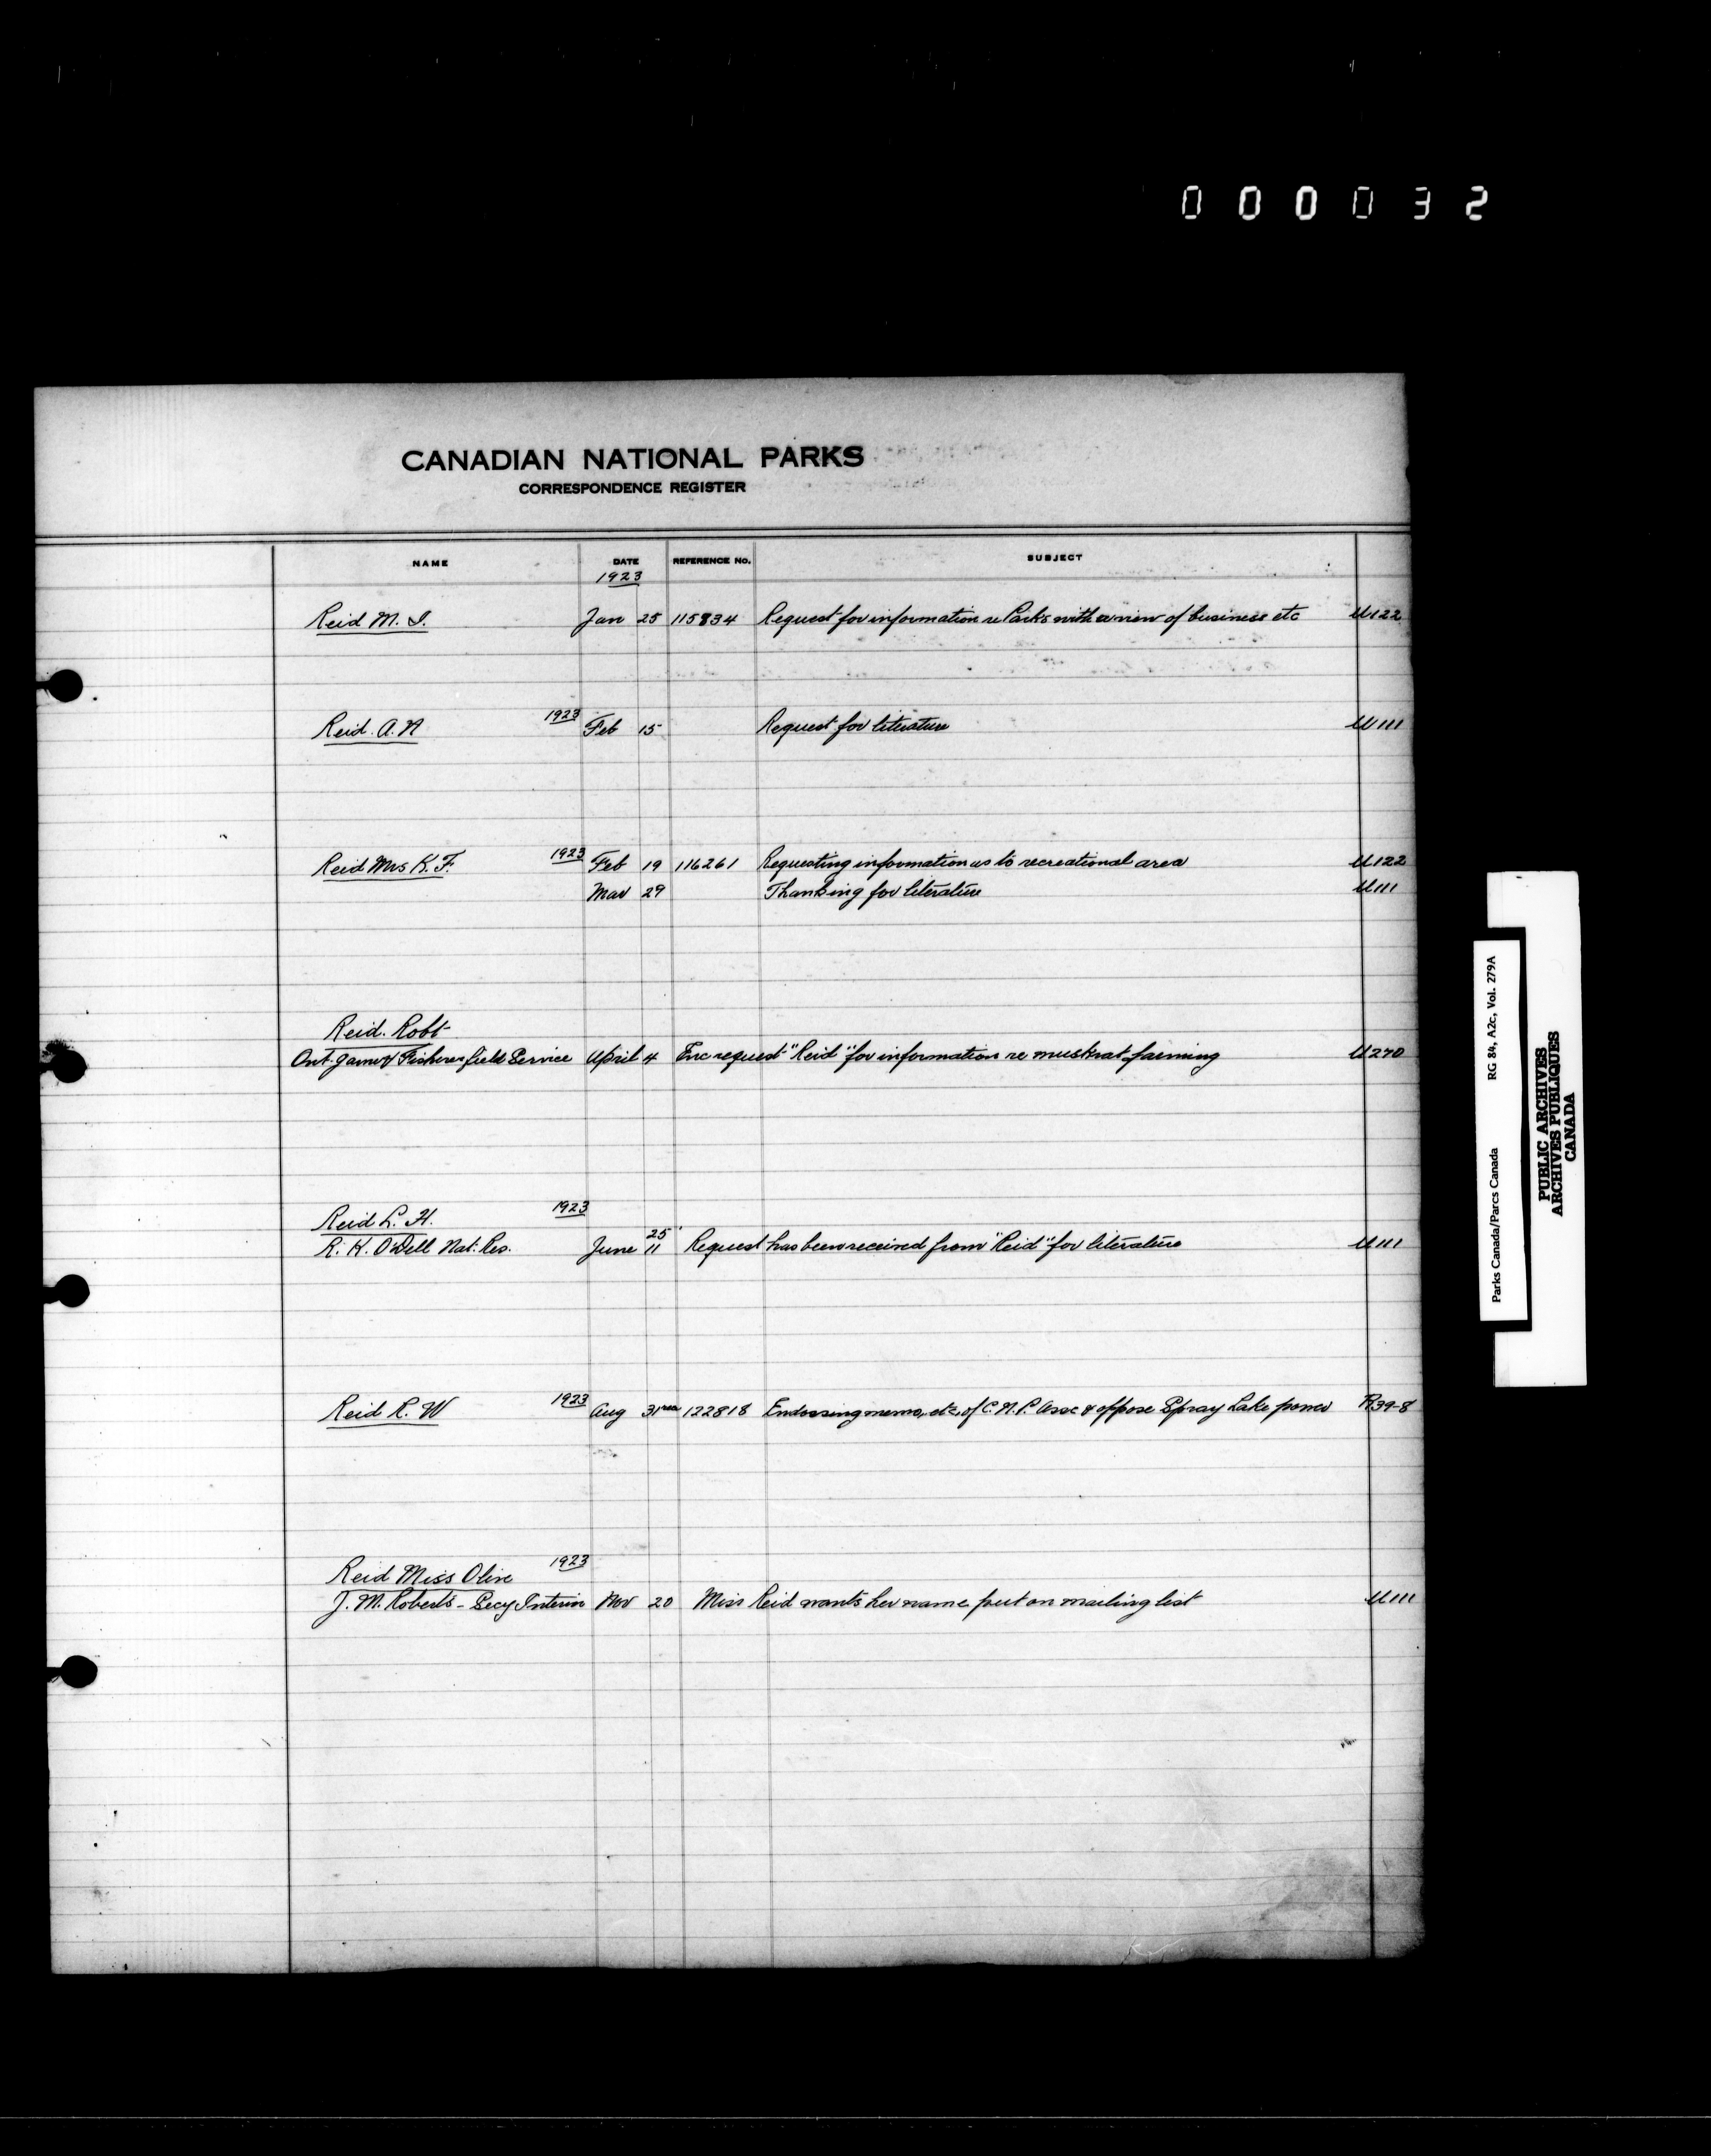 000032
CANADIAN NATIONAL PARKS
CORRESPONDENCE REGISTER
NAME DATE REFERENCE NO. SUBJECT
1923
Reid M. I. Jan 25 115834 Request for information re Parks with a view of business etc U122
Reid. A. N 1923 Feb 15 Request for literature U111
Reid Mrs K. F. 1923 Feb 19 116261 Requesting information as to recreational area U122
Mar 29 Thanking for literature U111
Reid. Robt
Ont. Game & Fisheries field Service April 4 Enc request "Reid" for information re muskrat farming U270
Reid L. H. 1923
25
R. K. O'Dell Nat. Res. June 11 Request has been received from "Reid" for literature U111
Reid R. W 1923 Aug 31 122818 Endorsing memo, etc, of C. N. P. Assc & oppose Spray Lake power R39-8
Reid Miss Olive 1923
J. M. Roberts - Secy Interior Nov 20 Miss Reid wants her name put on mailing list U111
Parks Canada/Parcs Canada RG 84, A2c, Vol. 279A
PUBLIC ARCHIVES
ARCHIVES PUBLIQUES
CANADA